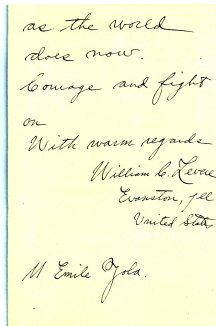 as the world
does now.
Courage and fight
on
With warm regards
William C. Levere
Evanston, Ill
United States
M Emile Zola.